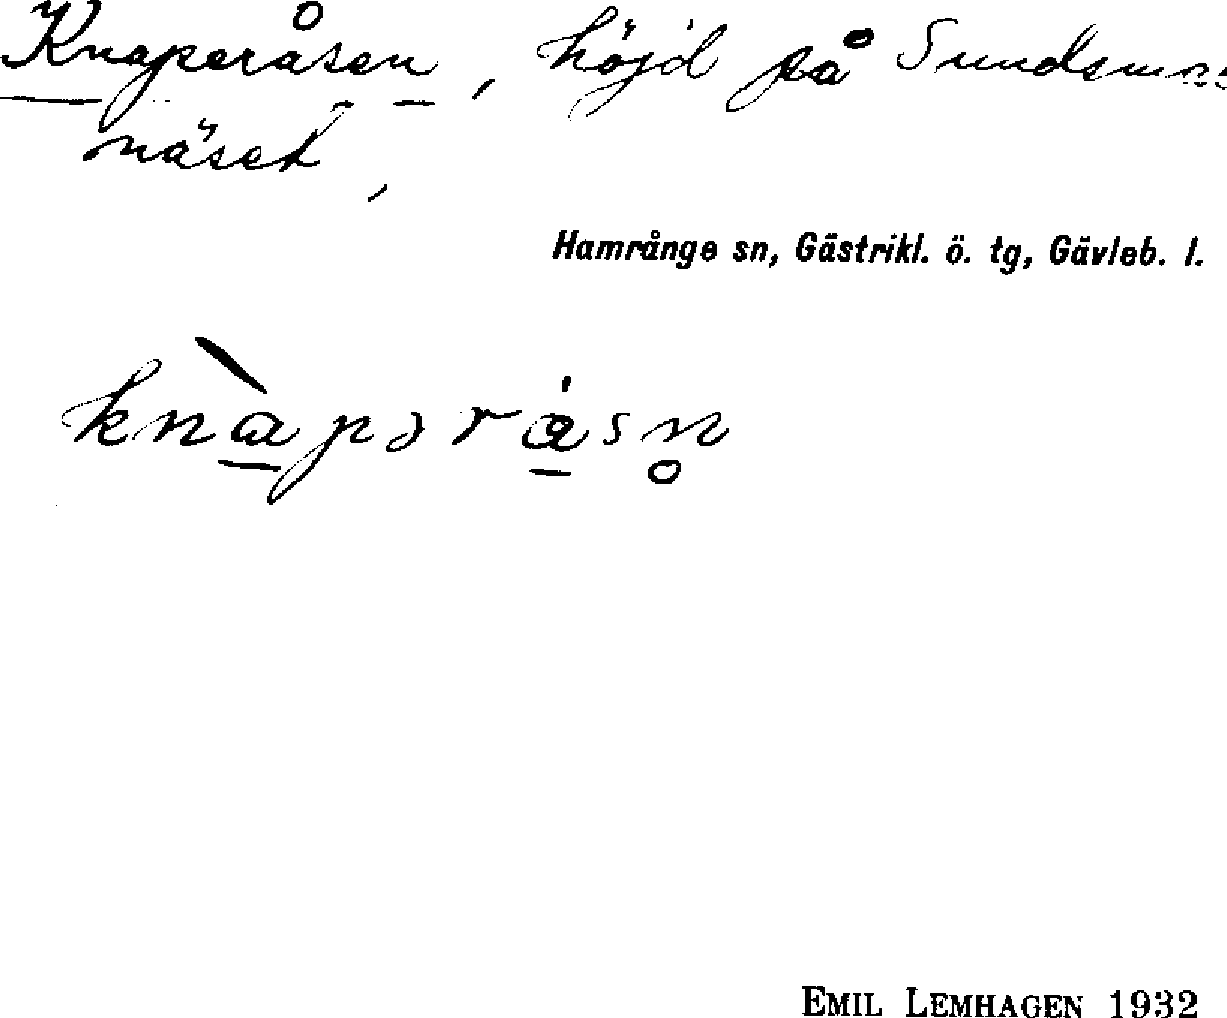 Knaperåsen, höjd på Sundsmar
näset,
Hamrånge sn, Gästrikl. ö. tg, Gävleb. l.
knàpərásn̥
EMIL LEMHAGEN 1932